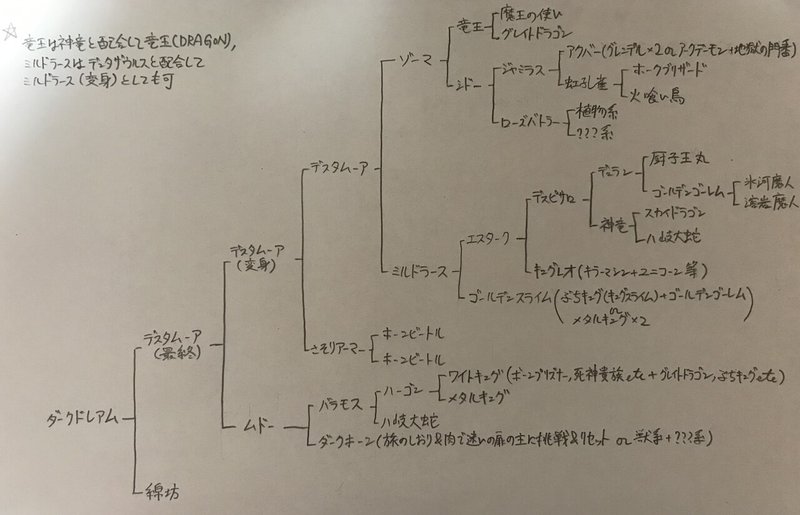 ☆ 竜王は神竜と配合して竜王(DRAGON),
ミルドラースはデュタザウルスと配合して
ミルドラース(変身)としても可
魔王の使い
竜王
グレイトドラゴン
ゾーマ
アクバー(グレンデル×2 or アークデーモン+地獄の門番)
ジャミラス
ホークブリザード
シドー
虹孔雀
火喰い鳥
植物系
ローズバトラー
???系
デスタムーア
厨子王丸
デュラン
氷河魔人
ゴールデンゴーレム
溶岩魔人
デスピサロ
スカイドラゴン
神竜
八岐大蛇
エスターク
デスタムーア
(変身)
キングレオ(キラーマシン+ユニコーン等)
ミルドラース
ゴールデンスライム(ぶちキング(キングスライム)+ゴールデンゴーレム
or
メタルキング×2)
デスタムーア
(最終)
ホーンビートル
さそりアーマー
ホーンビートル
ワイトキング(ボーンプリズナー,死神貴族etc+グレイトドラゴン,ぶちキングetc)
ハーゴン
メタルキング
バラモス
八岐大蛇
ダークドレアム
ムドー
ダークホーン(旅のしおり&肉で迷いの扉の主に挑戦&リセット or 獣系+???系)
綿坊